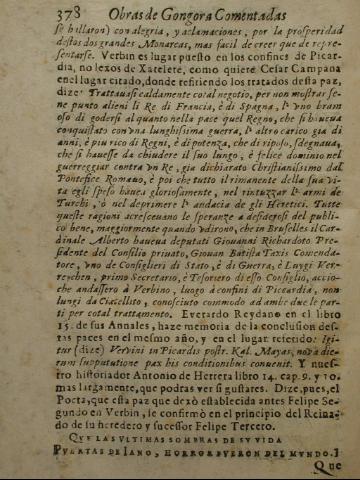 378 Obras de Gongora Comentadas
se hallaron) con alegria, y aclamaciones, por la prosperidad
destos dos grandes Monarcas, mas facil de creer que de repre-
sentarse. Verbin es lugar puesto en los confines de Picar-
dia, no lexos de Xatelete, como quiere Cesar Campana
en el lugar citado, donde refiriendo los tratados desta paz,
dize: Trattauasi caldamente cotal negotio, per non mostrar se-
ne punto alieni li Re di Francia, è di Spagna, l' vno bram
oso di godersi alquanto nella pace quel Regno, che si haueua
conquistato con vna lunghissima guerra, l' altro carico gia di
anni, è piu rico di Regni, è di potenza, che di riposo, sdegnaua,
che si hauesse da chiudere il suo lungo, è felice dominio nel
guerreggiar contra vn Re, gia dichiarato Christianissimo dal
Pontefice Romano, è poi che tutto il rimanente della sua vi-
ta egli speso hauea gloriosamente, nel rintuzzar l' armi de
Turchi, ò nel deprimere l' audacia de gli Heretici. Tutte
queste ragioni acresceuano le speranze a desiderosi del publi-
co bene, maggiormente quando vdirono, che in Bruselles il Car-
dinale Alberto haueua deputati Giouanni Richardoto Pre-
sidente del Consiglio priuato, Giouan Batista Taxis Comenda-
tore, vno de Consiglieri di Stato, è di Guerra, è Luygi Ver-
reychen, primo Secretario, è Tesoriero di esso Consiglio, accio-
che andassero à Verbino, luogo à confini di Piccardia, non
lungi da Ciastelleto, conosciuto commodo ad ambe due le par-
ti per cotal trattamento. Everardo Reydano en el libro
15. de sus Annales, haze memoria de la conclusion des-
tas paces en el mesmo año, y en el lugar referido: Igi-
tur (dize) Vervini in Picardis postr. Kal. Mayas, nova die-
rum supputatione pax his conditionibus convenit. Y nues-
tro historiador Antonio de Herrera libro 14. cap. 9. y 10.
mas largamente, que podras ver si gustares. Dize, pues, el
Poeta, que esta paz que dexò establecida antes Felipe Se-
gundo en Verbin, se confirmò en el principio del Reina-
do de su heredero y sucessor Felipe Tercero.
QUE LAS VLTIMAS SOMBRAS DE SV VIDA
PVERTAS DE IANO, HORROR FVERON DEL MVNDO.]
Que